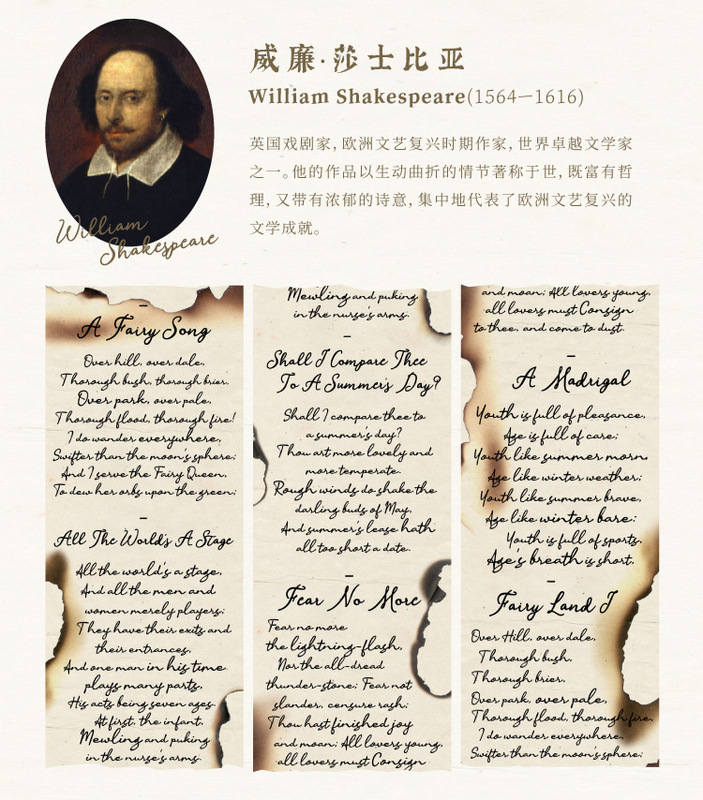 威廉·莎士比亚
William Shakespeare(1564—1616)
英国戏剧家, 欧洲文艺复兴时期作家, 世界卓越文学家
之一。他的作品以生动曲折的情节著称于世, 既富有哲
理, 又带有浓郁的诗意, 集中地代表了欧洲文艺复兴的
文学成就。
William
Shakespeare
A Fairy Song
Over hill, over dale,
Thorough bush, thorough brier,
Over park, over pale,
Thorough flood, thorough fire!
I do wander everywhere,
Swifter than the moon's sphere;
And I serve the Fairy Queen,
To dew her orbs upon the green;
All The World's A Stage
All the world's a stage,
And all the men and
women merely players;
They have their exits and
their entrances,
And one man in his time
plays many parts,
His acts being seven ages.
At first, the infant,
Mewling and puking
in the nurse's arms.
Mewling and puking
in the nurse's arms.
Shall I Compare Thee
To A Summer's Day?
Shall I compare thee to
a summer's day?
Thou art more lovely and
more temperate.
Rough winds do shake the
darling buds of May,
And summer's lease hath
all too short a date.
Fear No More
Fear no more
the lightning-flash,
Nor the all-dread
thunder-stone; Fear not
slander, censure rash;
Thou hast finished joy
and moan; All lovers young,
all lovers must Consign
and moan; All lovers young,
all lovers must Consign
to thee, and come to dust.
A Madrigal
Youth is full of pleasance,
Age is full of care;
Youth like summer morn,
Age like winter weather;
Youth like summer brave,
Age like winter bare:
Youth is full of sports,
Age's breath is short,
Fairy Land I
Over Hill, over dale,
Thorough bush,
Thorough brier,
Over park, over pale,
Thorough flood, thorough fire,
I do wander everywhere,
Swifter than the moon's sphere;